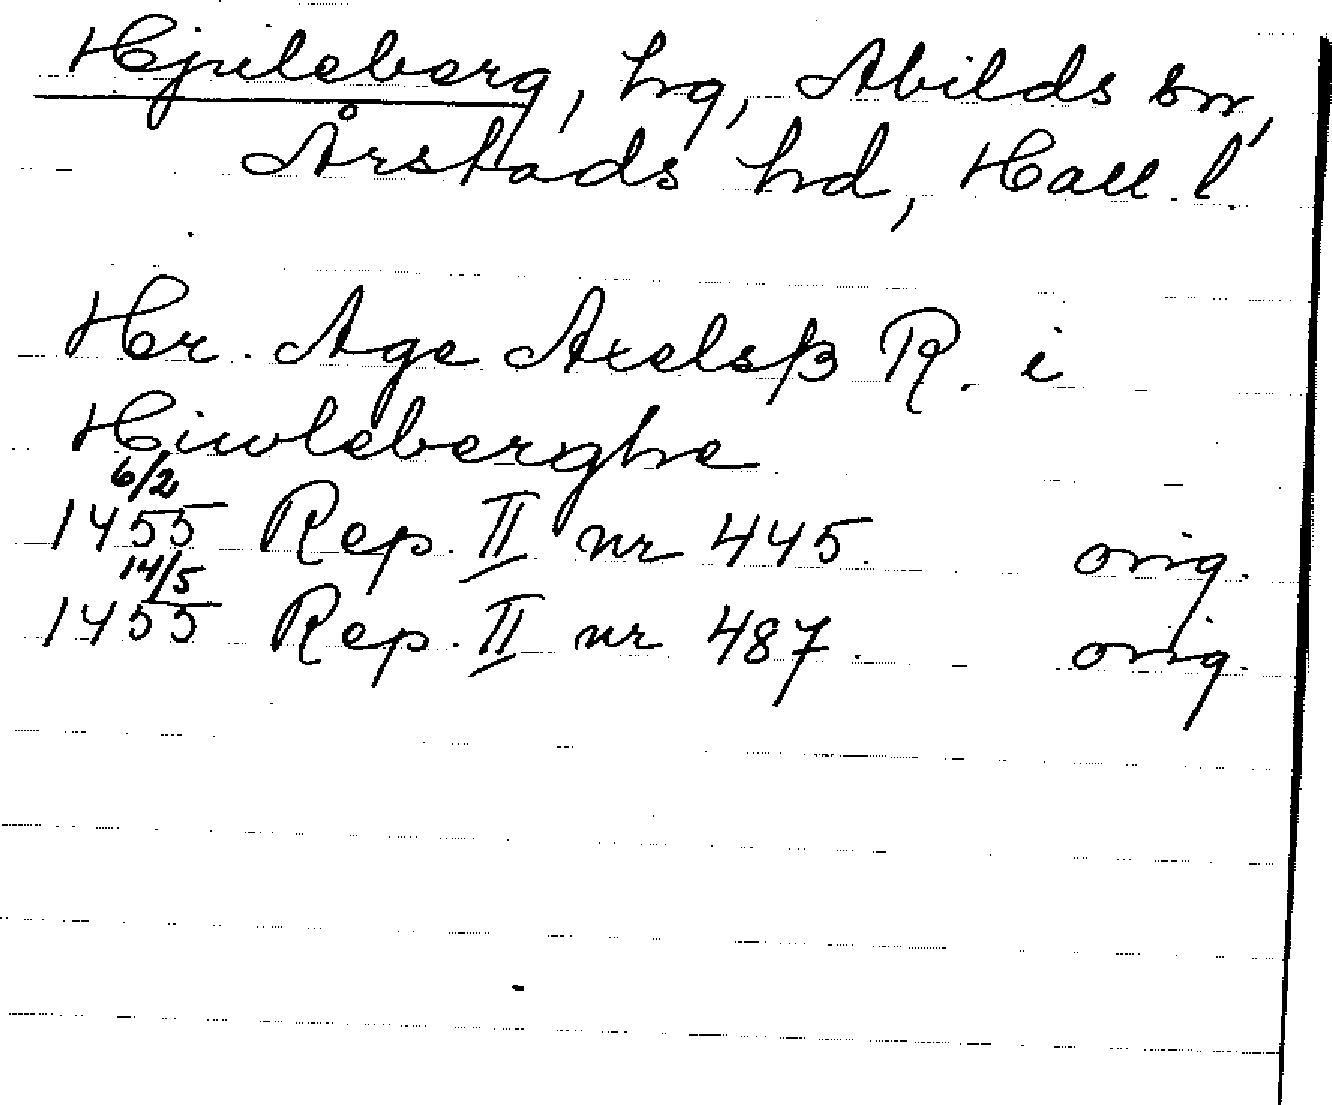 Hjuleberg, hg, Abilds sn,
Årstads hd, Hall. l.
Hr. Age Axelsß R. i
Hiwleberghe
6/2
1455 Rep. II nr 445. orig.
14/5
1455 Rep. II nr 487. orig.